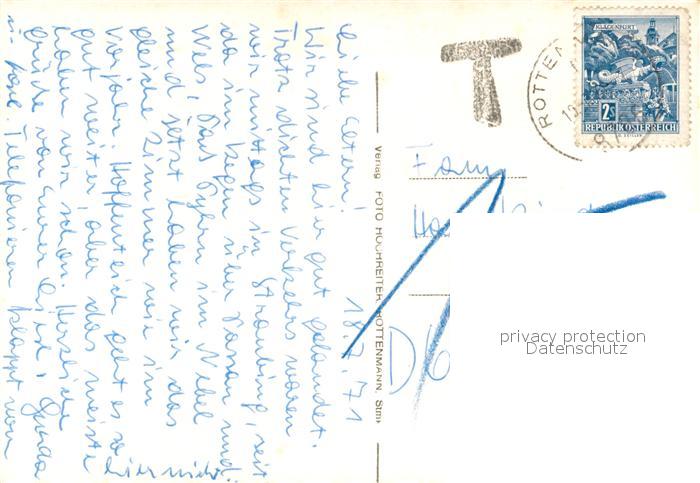 18.7.71
Liebe Eltern!
Wir sind hier gut gelandet.
Trotz dichten Verkehrs waren
wir mittags in Straubing, seit
da im Regen über Passau und
Wels, Pass Pyhrn im Nebel
und jetzt haben wir das
gleiche Zimmer wie im
Vorjahr. Hoffentlich geht es so
gut weiter, aber das meiste
haben wir schon. Herzliche
Grüße von Eurer
Telefonieren klappt von
hier nicht
Verlag FOTO HOCHREITER, ROTTENMANN, Stmk
T
ROTTEN
KLAGENFURT
2S
REPUBLIK ÖSTERREICH
Fam
D 6
privacy protection
Datenschutz